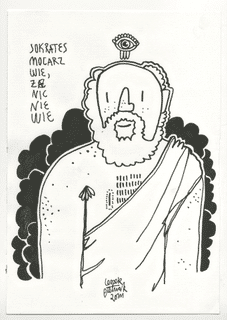 SOKRATES
MOCARZ
WIE,
ŻE
NIC
NIE
WIE